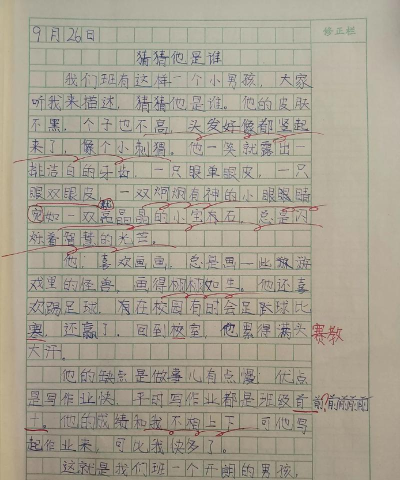 9月26日
修正栏
猜猜他是谁
我们班有这样一个小男孩，大家
听我来描述，猜猜他是谁。他的皮肤
不黑，个子也不高，头发好像都竖起
来了，像个小刺猬。他一笑就露出一
排洁白的牙齿，一只眼单眼皮，一只
眼双眼皮，一双炯炯有神的小眼睛
宛如一双亮晶晶的小宝石，总是闪
烁着智慧的光芒。
他喜欢画画，总是画一些旅游
戏里的怪兽，画得栩栩如生。他还喜
欢踢足球，有在校园有时会足球比
赛，还赢了，回到教室，他累得满头 赛教
大汗。
他的缺点是做事儿有点慢，优点
是写作业快，平时写作业都是班级前
十。他的成绩和我不相上下，可他写
起作业来，可比我快多了。
这就是我们班一个开朗的男孩，